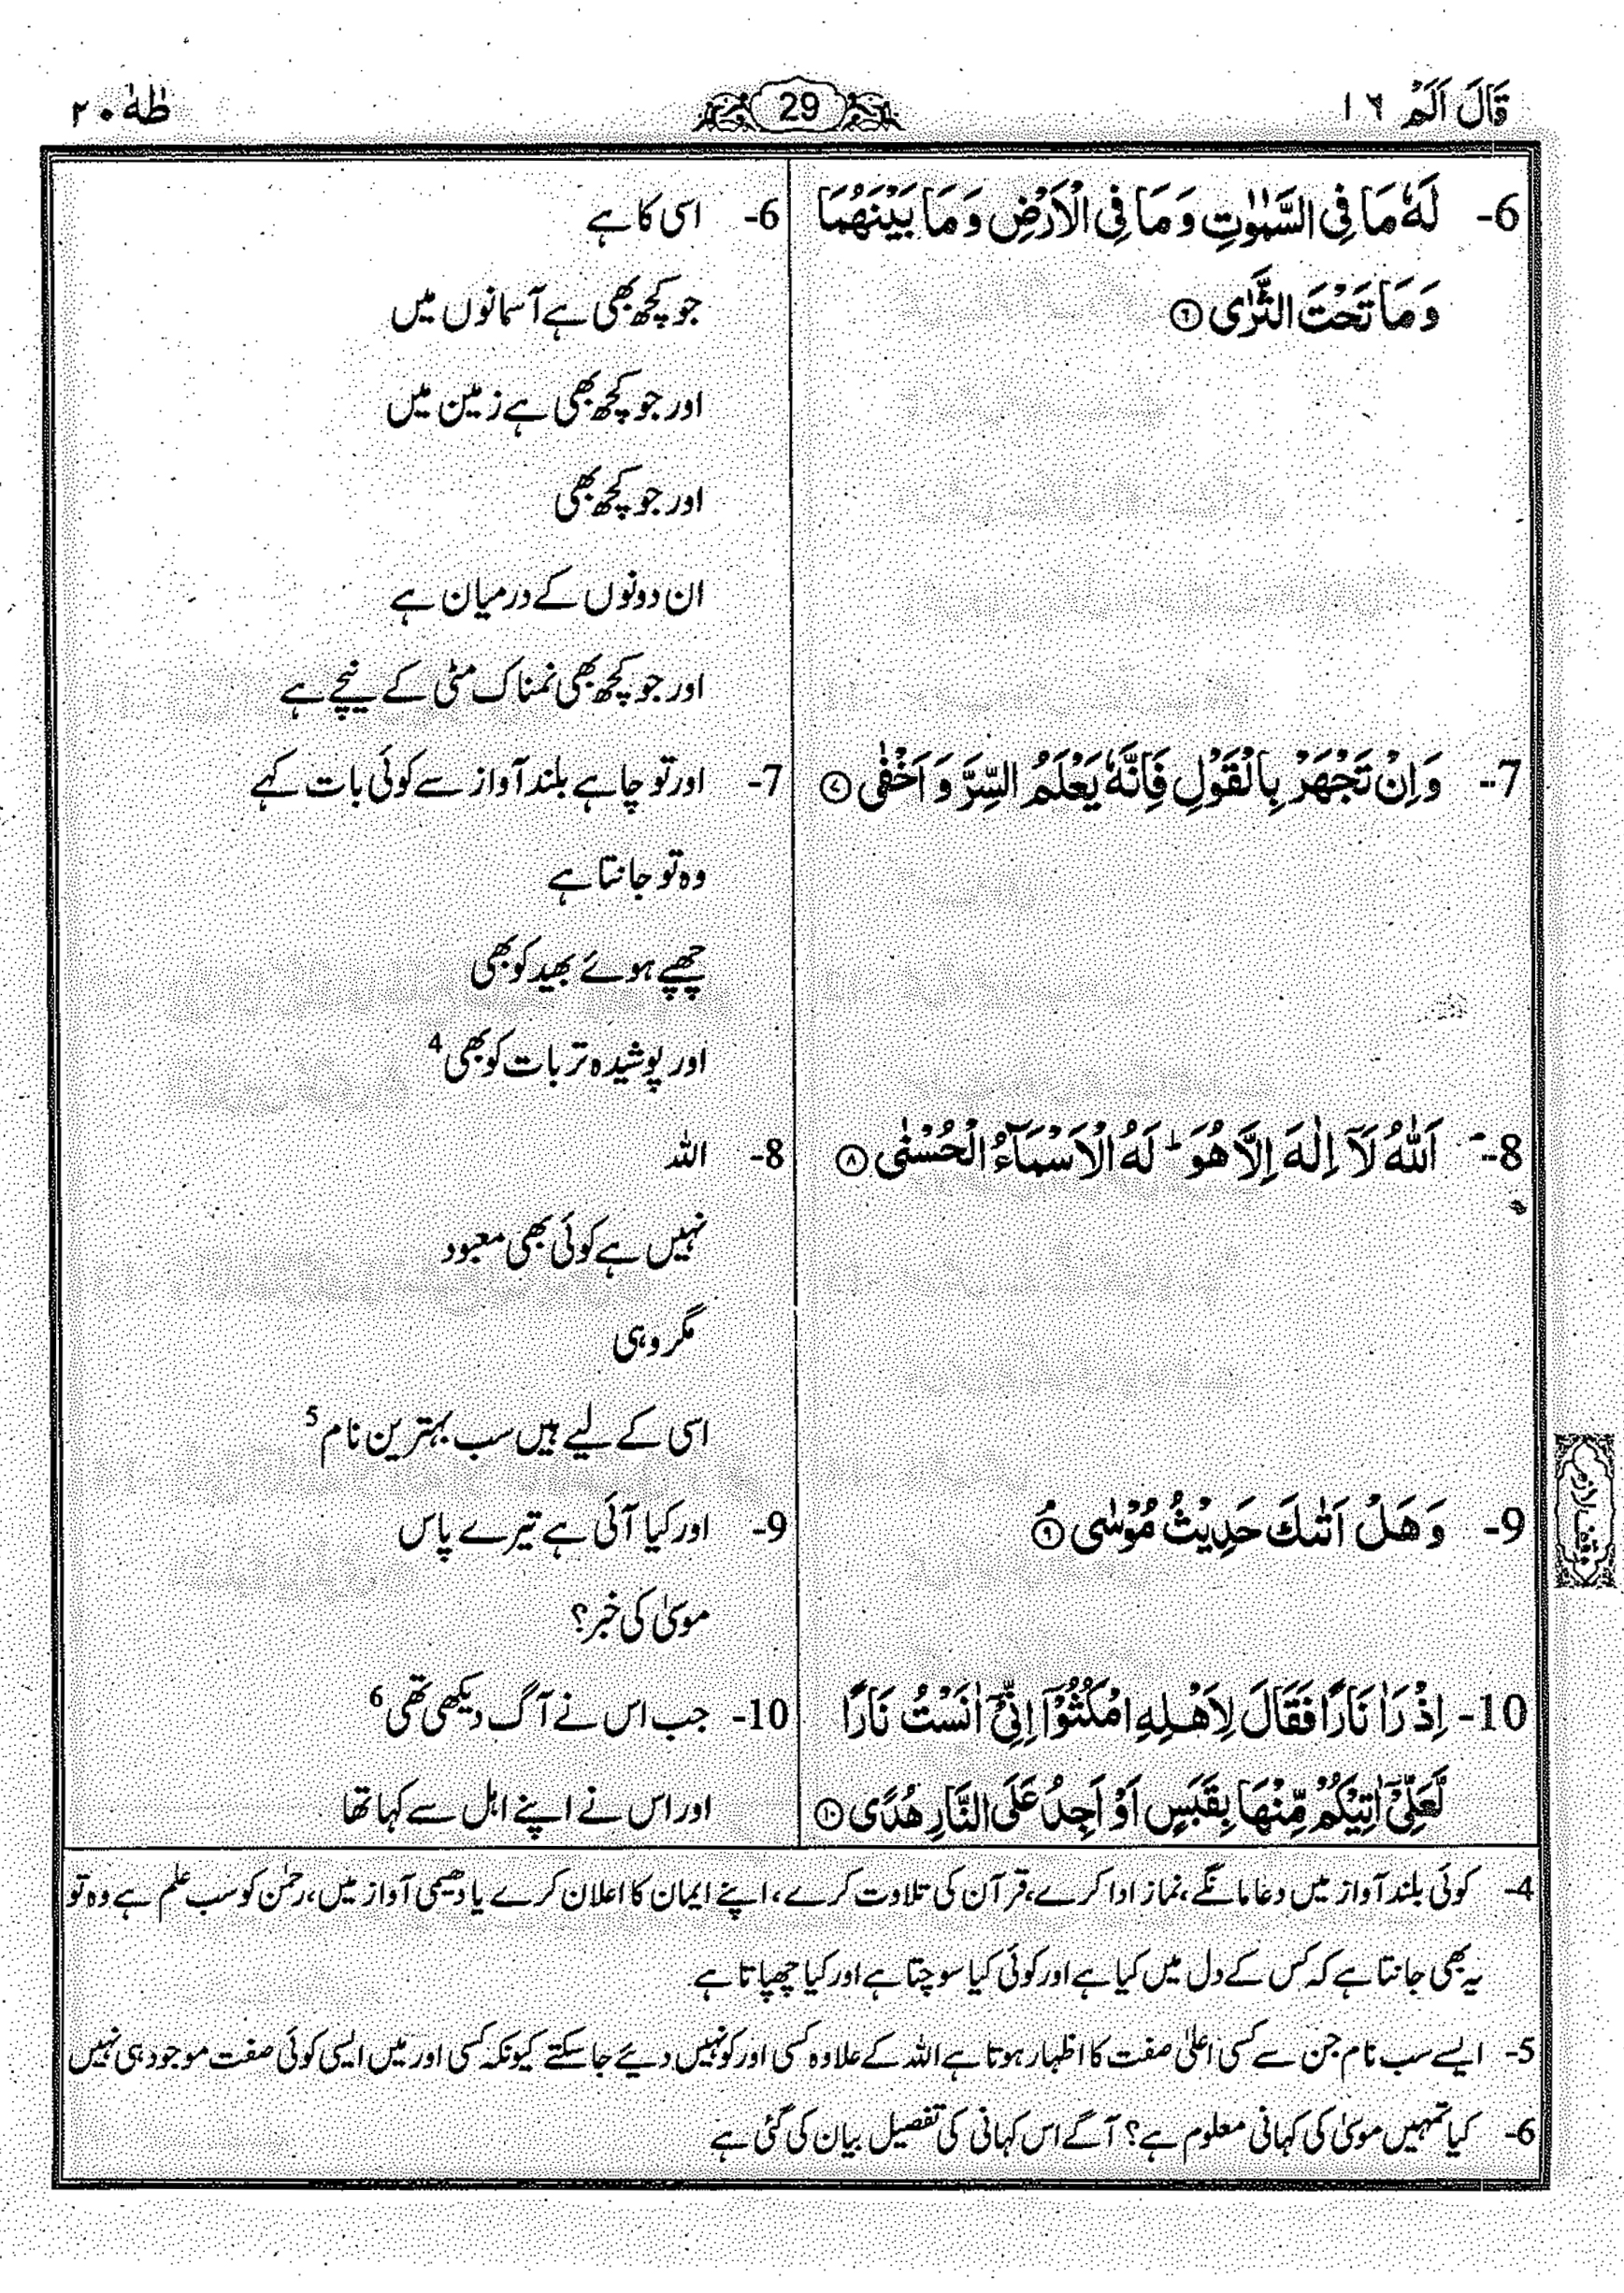 قَالَ اَلَمْ ١٦
29
طٰهٰ ٢٠
6- لَهٗ مَا فِي السَّمٰوٰتِ وَ مَا فِي الْاَرْضِ وَ مَا بَيْنَهُمَا
وَ مَا تَحْتَ الثَّرٰى ﴿٦﴾
6- اسی کا ہے
جو کچھ بھی ہے آسمانوں میں
اور جو کچھ بھی ہے زمین میں
اور جو کچھ بھی
ان دونوں کے درمیان ہے
اور جو کچھ بھی نمناک مٹی کے نیچے ہے
7- وَ اِنْ تَجْهَرْ بِالْقَوْلِ فَاِنَّهٗ يَعْلَمُ السِّرَّ وَ اَخْفٰى ﴿٧﴾
7- اور تو چاہے بلند آواز سے کوئی بات کہے
وہ تو جانتا ہے
چھپے ہوئے بھید کو بھی
اور پوشیدہ تر بات کو بھی 4
8- اَللّٰهُ لَاۤ اِلٰهَ اِلَّا هُوَ ؕ لَهُ الْاَسْمَآءُ الْحُسْنٰى ﴿٨﴾
8- اللہ
نہیں ہے کوئی بھی معبود
مگر وہی
اسی کے لیے ہیں سب بہترین نام 5
9- وَ هَلْ اَتٰىكَ حَدِيْثُ مُوْسٰى ﴿٩﴾ۘ
وقف لازم
9- اور کیا آئی ہے تیرے پاس
موسیٰ کی خبر؟
10- اِذْ رَاٰ نَارًا فَقَالَ لِاَهْلِهِ امْكُثُوْۤا اِنِّيْۤ اٰنَسْتُ نَارًا
لَّعَلِّيْۤ اٰتِيْكُمْ مِّنْهَا بِقَبَسٍ اَوْ اَجِدُ عَلَى النَّارِ هُدًى ﴿١٠﴾
10- جب اس نے آگ دیکھی تھی 6
اور اس نے اپنے اہل سے کہا تھا
4- کوئی بلند آواز میں دعا مانگے، نماز ادا کرے، قرآن کی تلاوت کرے، اپنے ایمان کا اعلان کرے یا دھیمی آواز میں، رحمٰن کو سب علم ہے وہ تو
یہ بھی جانتا ہے کہ کس کے دل میں کیا ہے اور کوئی کیا سوچتا ہے اور کیا چھپاتا ہے
5- ایسے سب نام جن سے کسی اعلیٰ صفت کا اظہار ہوتا ہے اللہ کے علاوہ کسی اور کو نہیں دیئے جا سکتے کیونکہ کسی اور میں ایسی کوئی صفت موجود ہی نہیں
6- کیا تمہیں موسیٰ کی کہانی معلوم ہے؟ آگے اس کہانی کی تفصیل بیان کی گئی ہے